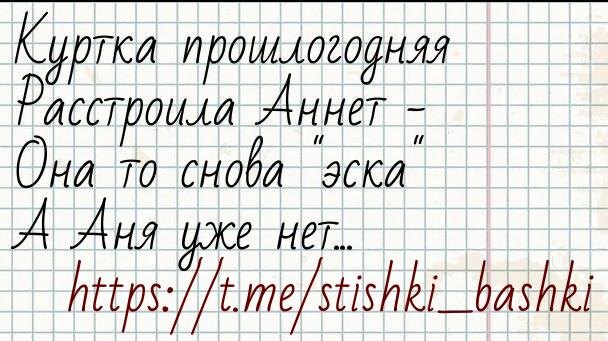 Куртка прошлогодняя
Расстроила Аннет -
Она то снова "эска"
А Аня уже нет...
https://t.me/stishki_bashki